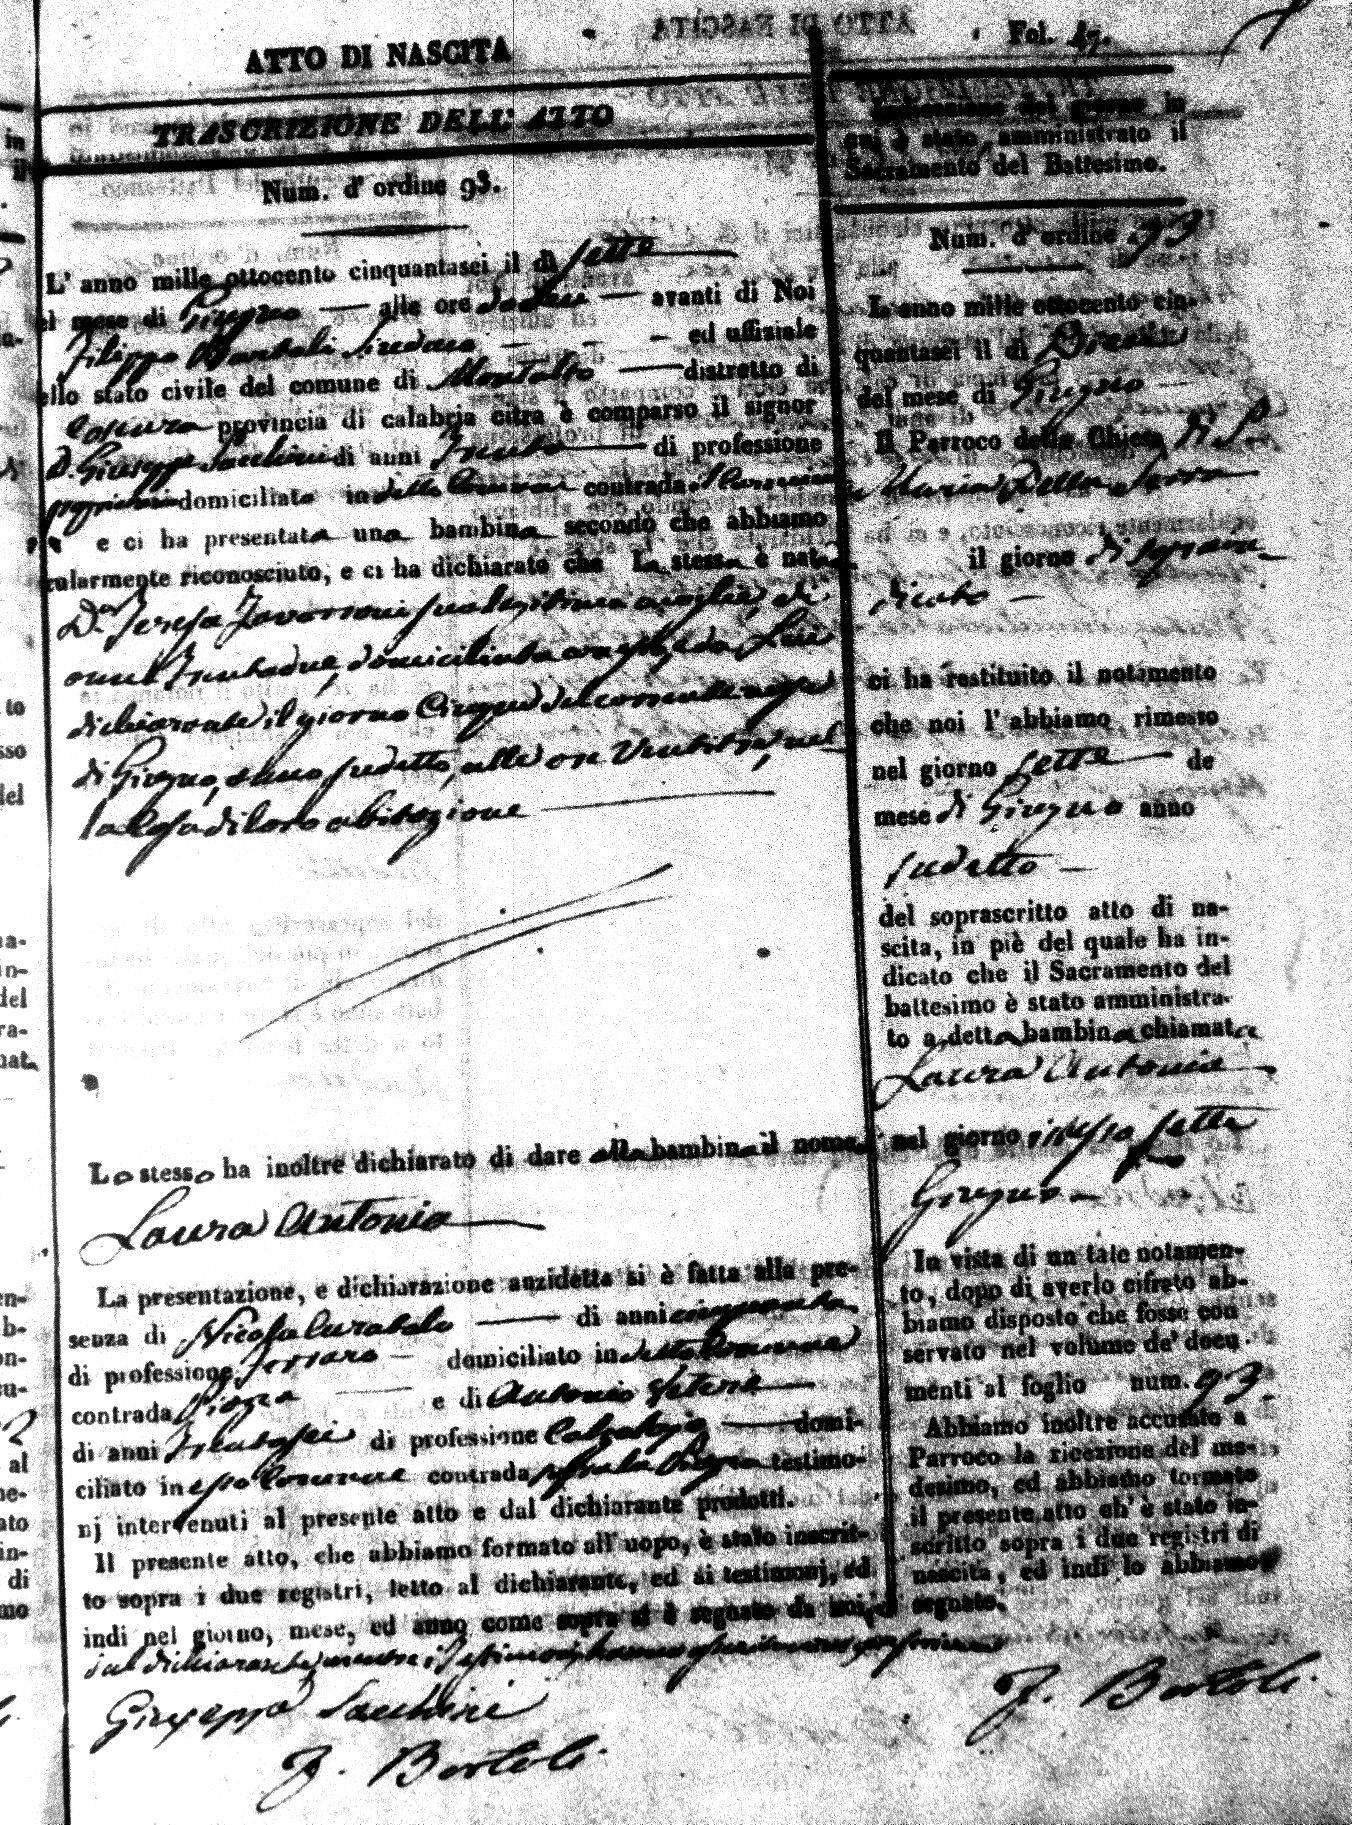 ATTO DI NASCITA
TRASCRIZIONE DELL' ATTO
Num. d' ordine 93.
L' anno mille ottocento cinquantasei il dì Sette
del mese di Giugno — alle ore dodeci — avanti di Noi
Filippo Bartoli Sindaco — — — ed uffiziale
ello stato civile del comune di Montalto — distretto di
Cosenza provincia di calabria citra è comparso il signor
D. Giuseppe Sacchini di anni Trenta — di professione
proprietario domiciliato in detto Comune contrada
e ci ha presentata una bambina secondo che abbiamo
cularmente riconosciuto, e ci ha dichiarato che La stessa è nata da
D.a Teresa sua legittima moglie, di
anni Trentadue, domiciliata con esso, e da Lui
dichiarante il giorno Cinque del corrente mese
di Giugno, anno sudetto, alle ore Ventitre, nel
la Casa di loro abitazione
Lo stesso ha inoltre dichiarato di dare alla bambina il nome
Laura Antonia
La presentazione, e dichiarazione anzidetta si è fatta alla pre-
senza di Nicola Curatolo — di anni cinquanta
di professione Ferraro — domiciliato in detto Comune
contrada Piazza — e di Antonio
di anni Trentasei di professione Calzolajo — domi-
ciliato in esso Comune contrada testimo-
nj intervenuti al presente atto e dal dichiarante prodotti.
Il presente atto, che abbiamo formato all' uopo, è stato inscrit-
to sopra i due registri, letto al dichiarante, ed ai testimonj, ed
indi nel giorno, mese, ed anno come sopra si è segnato da noi, e
dal dichiarante, mentre i Testimonj hanno
Giuseppe Sacchini
F. Bartoli
Fol. 47.
Indicazione del giorno in
cui è stato amministrato il
Sacramento del Battesimo.
Num. d' ordine 93
L' anno mille ottocento cin-
quantasei il dì Dieci
del mese di Giugno —
Il Parroco della Chiesa di S.
Maria Della Serra
il giorno di sopra in
dicato —
ci ha restituito il notamento
che noi l' abbiamo rimesso
nel giorno Sette — de
mese di Giugno anno
sudetto —
del soprascritto atto di na-
scita, in piè del quale ha in-
dicato che il Sacramento del
battesimo è stato amministra-
to a detta bambina chiamata
Laura Antonia
nel giorno istesso sette
Giugno —
In vista di un tale notamen-
to, dopo di averlo cifrato ab-
biamo disposto che fosse con
servato nel volume de' docu-
menti al foglio num. 93.
Abbiamo inoltre accusato a
Parroco la ricezione del me-
desimo, ed abbiamo formato
il presente atto ch' è stato in-
scritto sopra i due registri di
nascita, ed indi lo abbiamo
segnato.
F. Bartoli